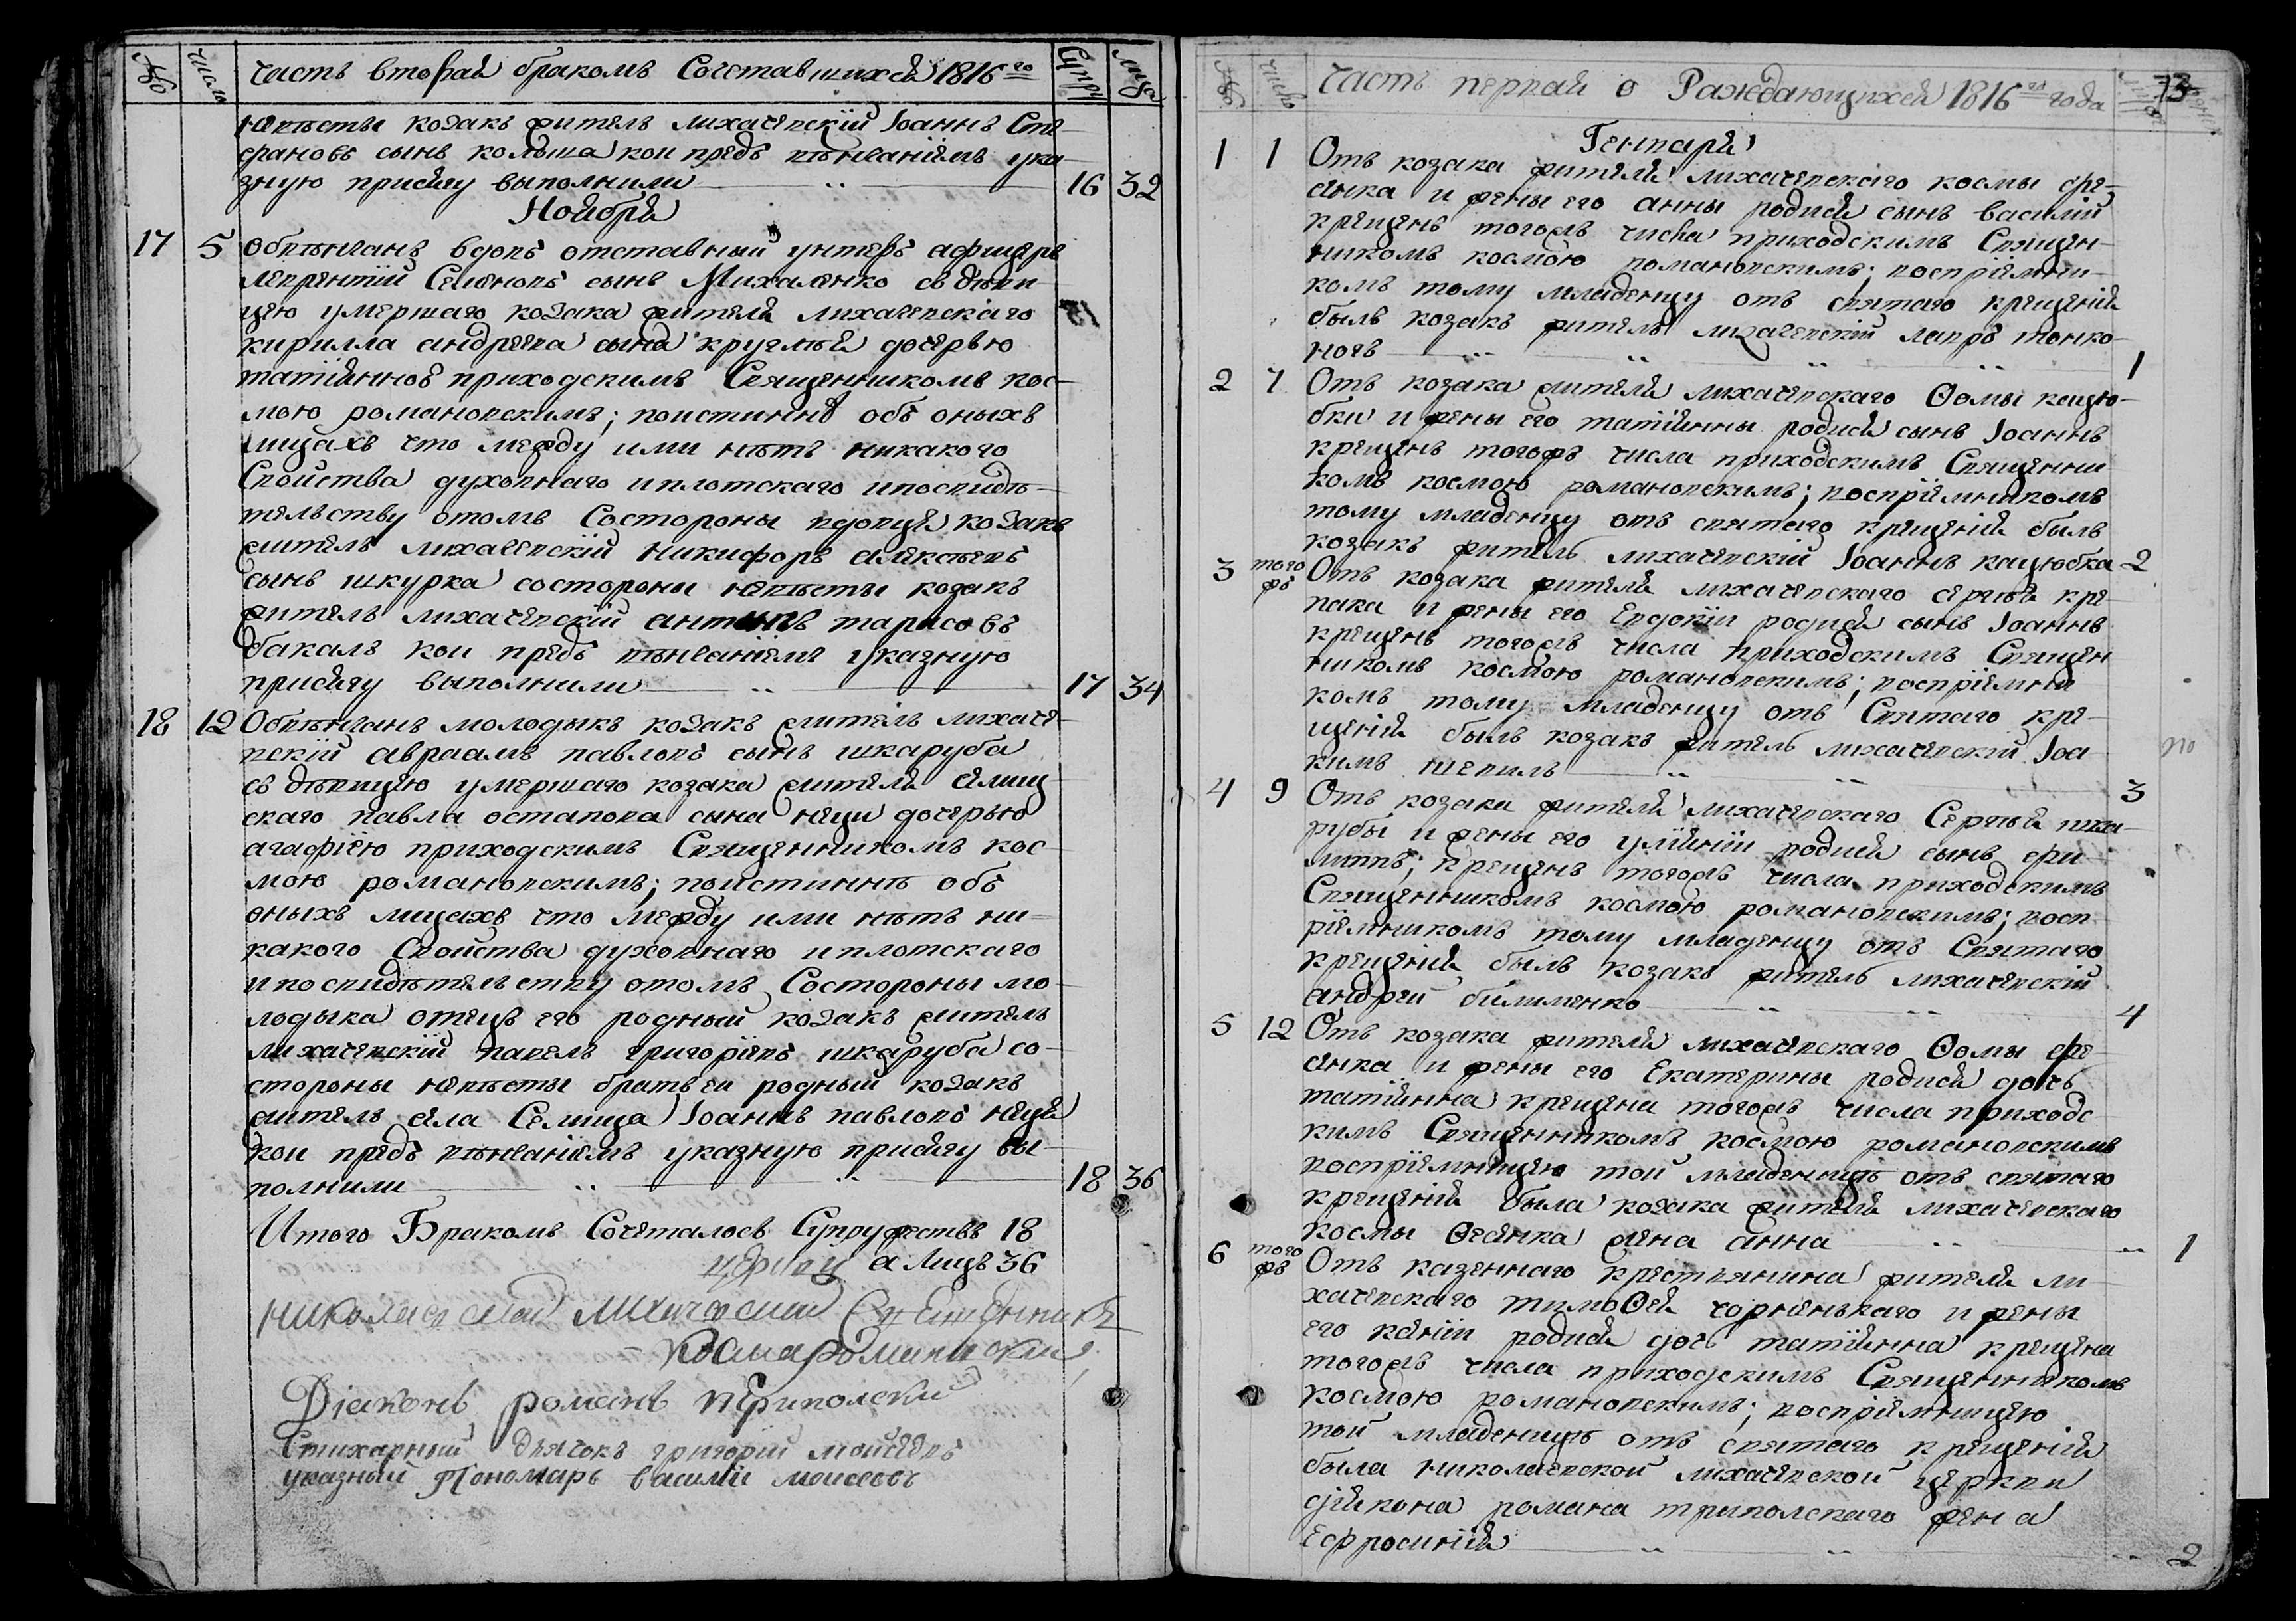 № число Часть вторая бракомъ Сочетавшихся 1816го Супру Лица
невѣсты козакъ житель лихачевскій Іоаннъ Сте-
фановъ сынъ кольша кои предъ вѣнчаніемъ ука-
зную присягу выполнили 16 32
Ноября
17 5 Обвѣнчанъ вдовъ отставный унтеръ афицеръ
леврентій Семеновъ сынъ Михаленко съ дѣви-
цею умершаго козака жителя лихачевскаго
кирилла андреева сына круглѣя дочерью
татіянноѣ приходскимъ Священникомъ кос-
мою романовскимъ; поистиннѣ объ оныхъ
лицахъ что между ими нѣтъ никакого
Свойства духовнаго и плотскаго и посвидѣ-
тельству отомъ Состороны вдовца козакъ
житель лихачевскій никифоръ алексѣевъ
сынъ шкурка состороны невѣсты козакъ
житель лихачевскій антипъ тарасовъ
бакалъ кои предъ вѣнчаніемъ указную
присягу выполнили 17 34
18 12 Обвѣнчанъ молодыкъ козакъ житель лихаче-
вскій авраамъ павловъ сынъ шкаруба
съ дѣвицею умершаго козака жителя селищ-
скаго павла остапова сына нещи дочерью
агафіею приходскимъ Священникомъ кос-
мою романовскимъ; поистиннѣ объ
оныхъ лицахъ что между ими нѣтъ ни-
какого Свойства духовнаго и плотскаго
и посвидѣтельству отомъ Состороны мо-
лодыка отецъ его родный козакъ житель
лихачевскій павелъ григоріевъ шкаруба со-
стороны невѣсты братъ еи родный козакъ
житель села Селища Іоаннъ павловъ неща
кои предъ вѣнчаніемъ указную присягу вы-
полнили 18 36
Итого Бракомъ Сочеталось Супружествъ 18
а Лицъ 36
николаевской лихачовской Священникъ
Косма романовский
Діаконъ романъ триполски
Стихарный дьячокъ григорій моисеевъ
указный Пономарь василій моисеевъ
№ число Часть первая о Раждающихся 1816го года 73
Генваря
1 1 Отъ козака жителя лихачевскаго космы фе-
сянка и жены его анны родися сынъ василій
крещенъ тогожъ числа приходскимъ Священ-
никомъ космою романовскимъ; воспріемни-
комъ тому младенцу отъ святаго крещенія
былъ козакъ житель лихачевскій лавръ тонко-
ногъ 1
2 7 Отъ козака жителя лихачевскаго Ѳомы кацю-
бки и жены его татіянны родися сынъ Іоаннъ
крещенъ тогожъ числа приходскимъ Священни
комъ космою романовскимъ; воспріемникомъ
тому младенцу отъ святаго крещенія былъ
козакъ житель лихачевскій Іоаннъ кацюбка 2
3 того жъ Отъ козака жителя лихачевскаго сергія кре-
пака и жены его Евдокіи родися сынъ Іоаннъ
крещенъ тогожъ числа приходскимъ Священ
никомъ космою романовскимъ; воспріемни
комъ тому младенцу отъ Святаго кре-
щенія былъ козакъ житель лихачевскій Іоа-
кимъ шепиль 3
4 9 Отъ козака жителя лихачевскаго Сергія шка-
рубы и жены его уліяніи родися сынъ фи-
липпъ; крещенъ тогожъ числа приходскимъ
Священникомъ космою романовскимъ; восп
ріемникомъ тому младенцу отъ Святаго
крещенія былъ козакъ житель лихачевскій
андрей билименко 4
5 12 Отъ козака жителя лихачевскаго Ѳомы фе-
сянка и жены его Екатерины родися дочь
татіянна крещена тогожъ числа приходс-
кимъ Священникомъ космою романовскимъ
воспріемницею той младеницѣ отъ святаго
крещенія была козака жителя лихачевскаго
космы Ѳесянка жена анна 1
6 того жъ Отъ казеннаго крестьянина жителя ли-
хачевскаго тимоѲея чорненькаго и жены
его ксеніи родися дочь татіянна крещена
тогожъ числа приходскимъ Священникомъ
космою романовскимъ; воспріемницею
той младеницѣ отъ святаго крещенія
была николаевской лихачевской церкви
діякона романа триполскаго жена
Ефросинія 2